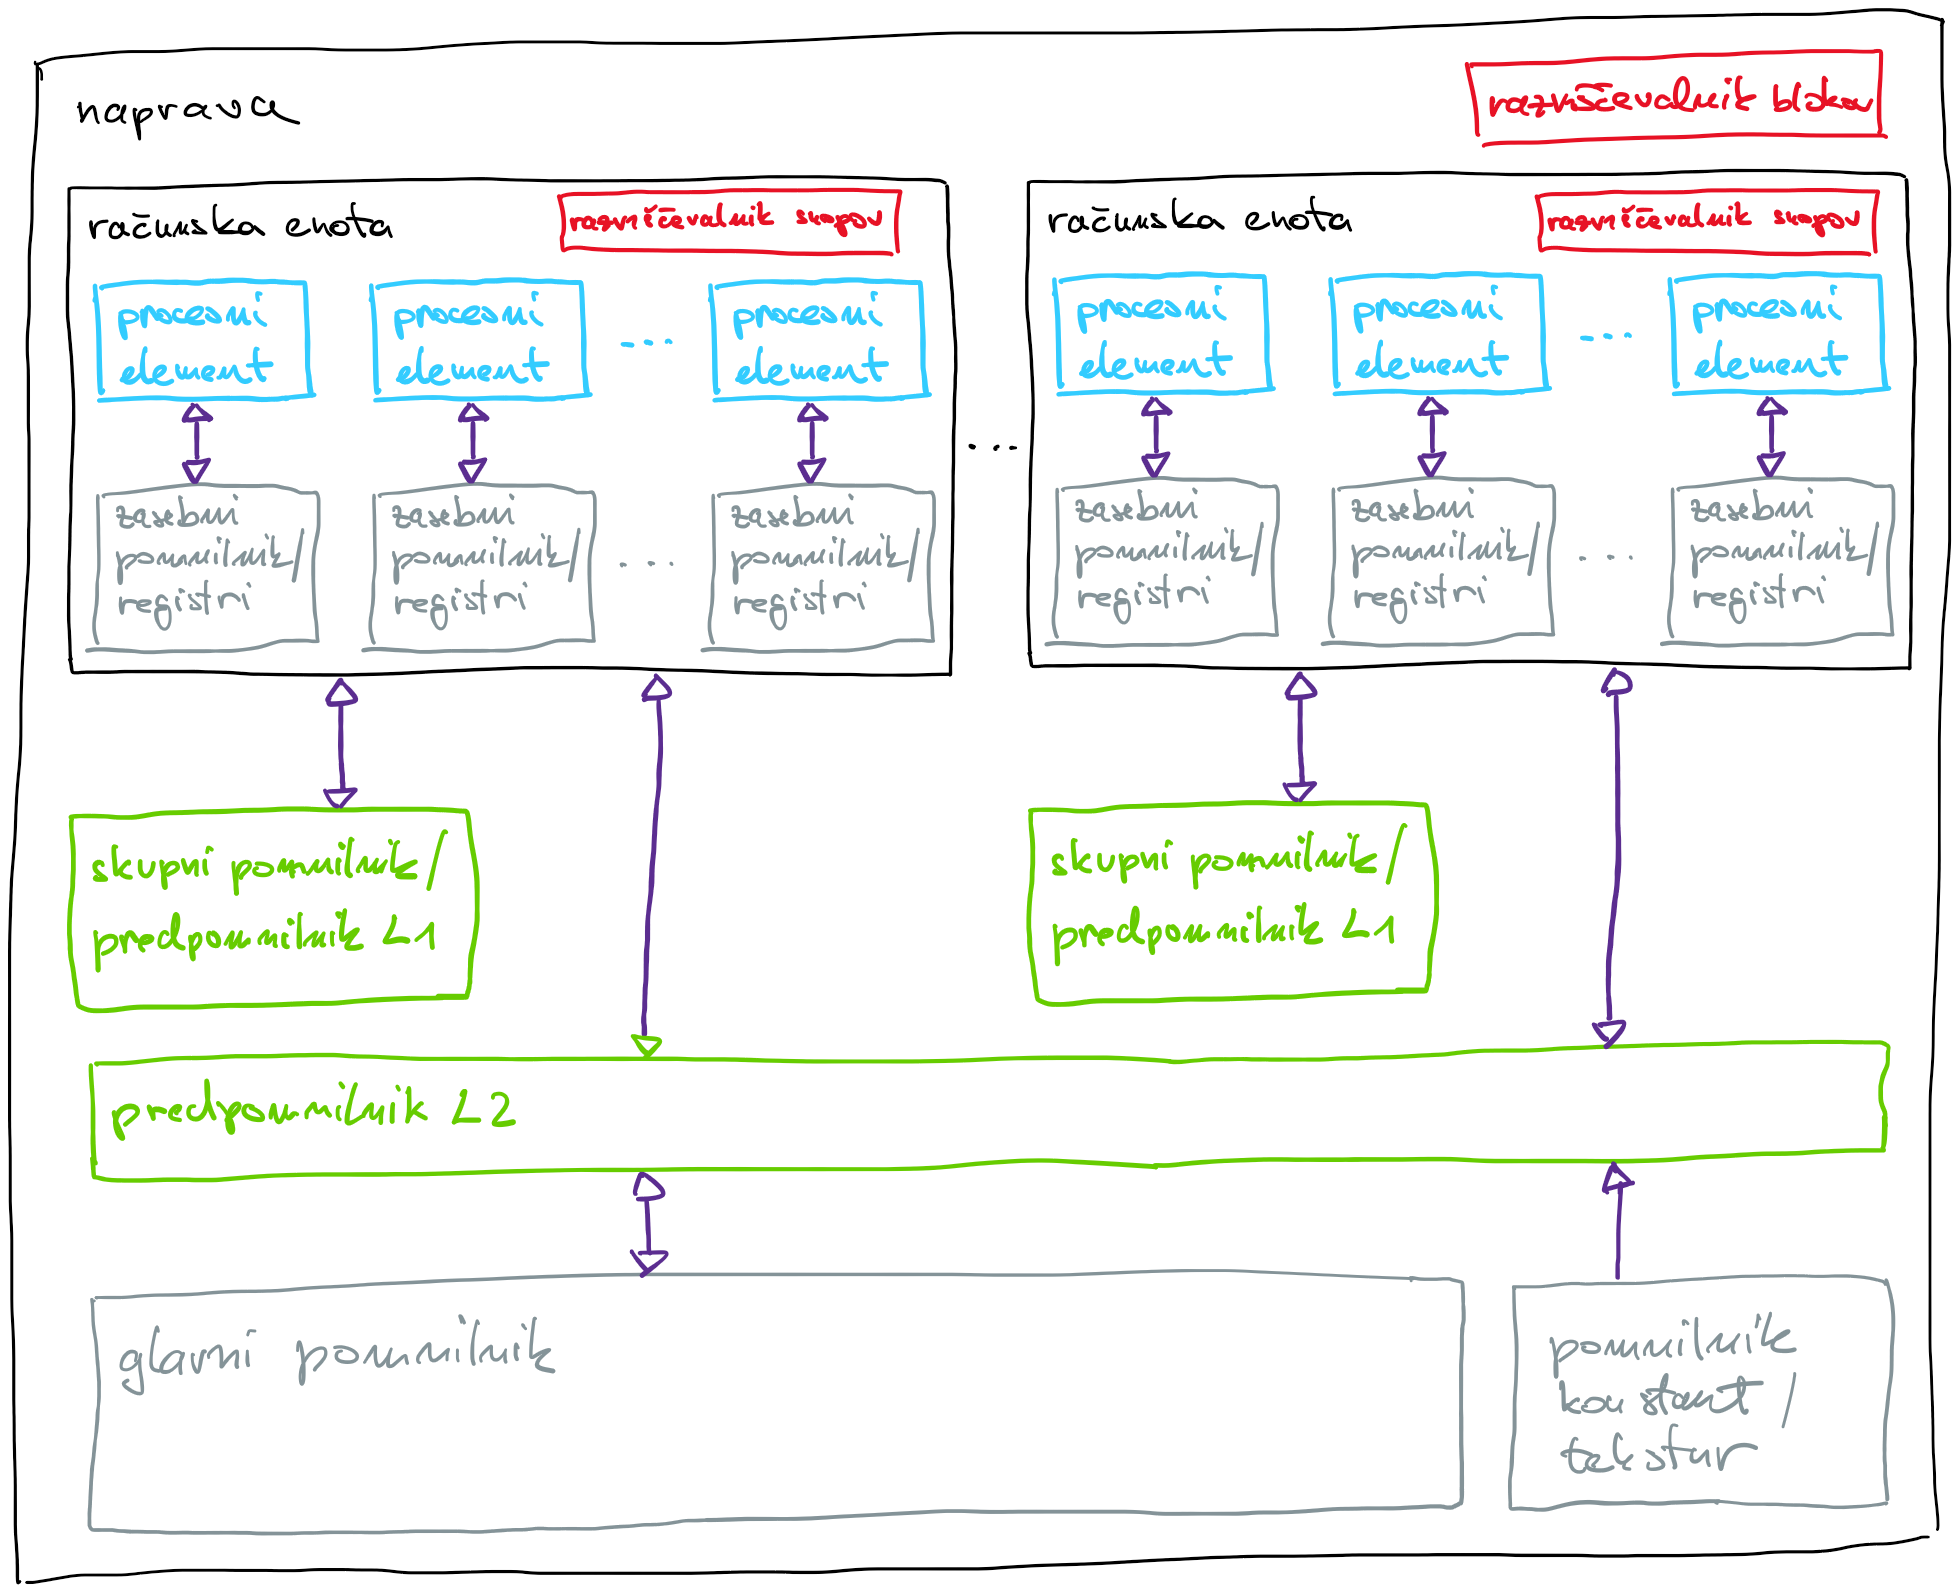 naprava
razvrščevalnik blokov
računska enota
razvrščevalnik snopov
procesni
element
procesni
element
...
procesni
element
zasebni
pomnilnik/
registri
zasebni
pomnilnik/
registri
...
zasebni
pomnilnik/
registri
...
računska enota
razvrščevalnik snopov
procesni
element
procesni
element
...
procesni
element
zasebni
pomnilnik/
registri
zasebni
pomnilnik/
registri
...
zasebni
pomnilnik/
registri
skupni pomnilnik/
predpomnilnik L1
skupni pomnilnik/
predpomnilnik L1
predpomnilnik L2
glavni pomnilnik
pomnilnik
konstant/
tekstur